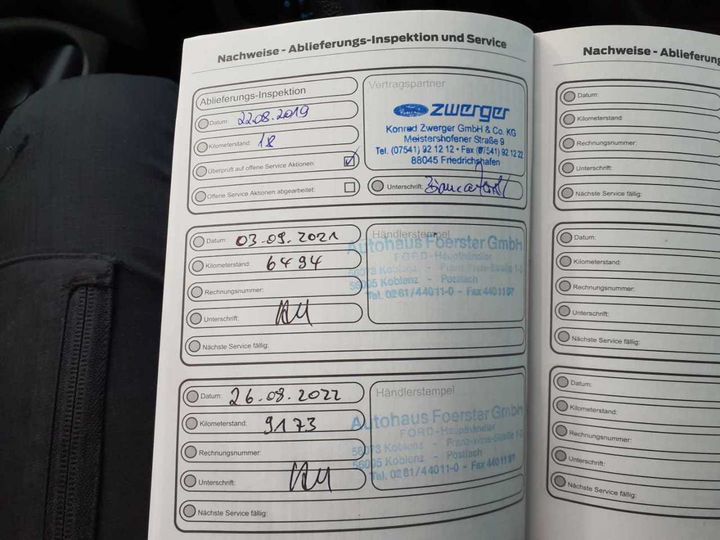 Nachweise - Ablieferungs-Inspektion und Service
Ablieferungs-Inspektion
Datum: 22.08.2019
Kilometerstand: 18
Überprüft auf offene Service Aktionen:
Offene Service Aktionen abgearbeitet:
Vertragspartner
Ford ZWERGER
Konrad Zwerger GmbH & Co. KG
Meistershofener Straße 9
Tel. (07541) 92 12 12 • Fax (07541) 92 12 22
88045 Friedrichshafen
Unterschrift:
Datum: 03.09.2021
Kilometerstand: 6494
Rechnungsnummer:
Unterschrift:
Nächste Service fällig:
Händlerstempel
Autohaus Foerster GmbH
FORD-Haupthändler
56073 Koblenz -
56005 Koblenz - Postfach
Tel. 0261/44011-0 - Fax 4401107
Datum: 26.08.2022
Kilometerstand: 9173
Rechnungsnummer:
Unterschrift:
Nächste Service fällig:
Händlerstempel
Autohaus Foerster GmbH
FORD-Haupthändler
56073 Koblenz -
56005 Koblenz - Postfach
Tel. 0261/44011-0 - Fax 4401107
Nachweise - Ablieferung
Datum:
Kilometerstand:
Rechnungsnummer:
Unterschrift:
Nächste Service fällig:
Datum:
Kilometerstand:
Rechnungsnummer:
Unterschrift:
Nächste Service fällig:
Datum:
Kilometerstand:
Rechnungsnummer:
Unterschrift:
Nächste Service fällig: